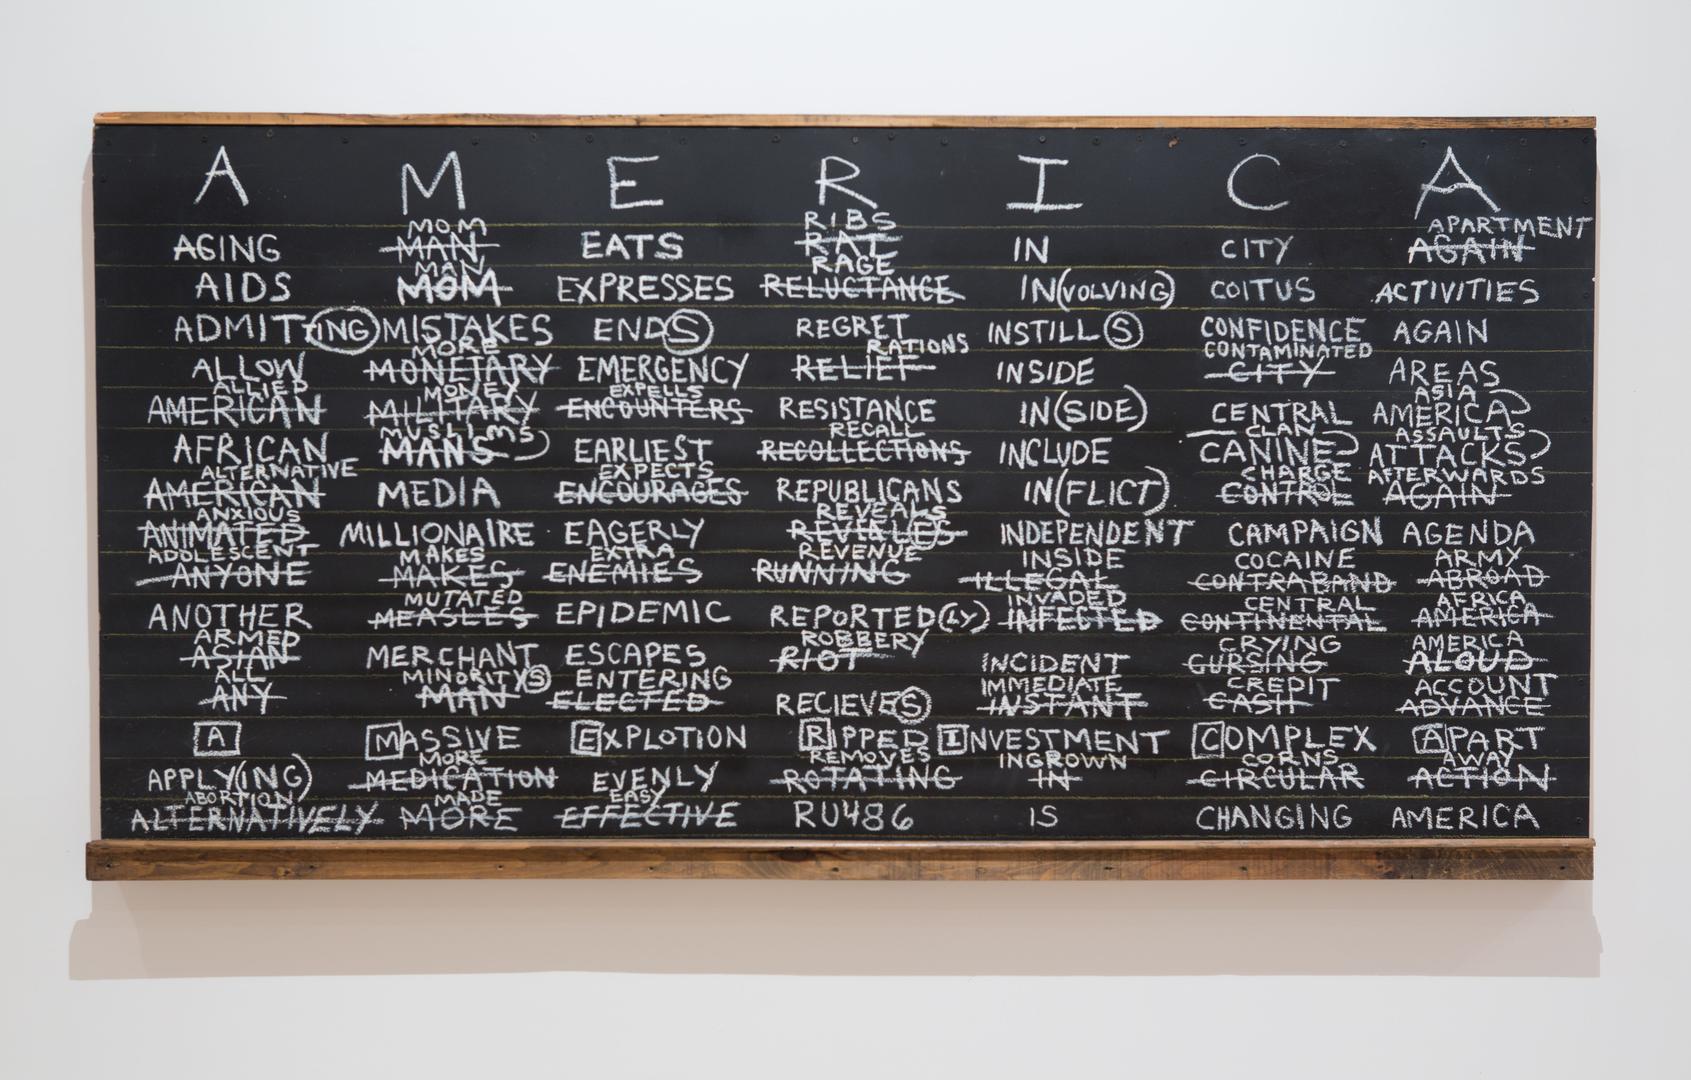 A M E R I C A
MOM RIBS APARTMENT
AGING MAN EATS RAT IN CITY AGAIN
MAN RAGE
AIDS MOM EXPRESSES RELUCTANCE IN(VOLVING) COITUS ACTIVITIES
ADMITTING MISTAKES ENDS REGRET INSTILLS CONFIDENCE AGAIN
MORE RATIONS CONTAMINATED
ALLOW MONETARY EMERGENCY RELIEF INSIDE CITY AREAS
ALLIED MONEY EXPELLS ASIA
AMERICAN MILITARY ENCOUNTERS RESISTANCE IN(SIDE) CENTRAL AMERICA
MUSLIMS RECALL CLAN ASSAULTS
AFRICAN MANS EARLIEST RECOLLECTIONS INCLUDE CANINE ATTACKS
ALTERNATIVE EXPECTS CHARGE AFTERWARDS
AMERICAN MEDIA ENCOURAGES REPUBLICANS IN(FLICT) CONTROL AGAIN
ANXIOUS REVEALS
ANIMATED MILLIONAIRE EAGERLY INDEPENDENT CAMPAIGN AGENDA
ADOLESCENT MAKES EXTRA REVENUE INSIDE COCAINE ARMY
ANYONE MAKES ENEMIES RUNNING ILLEGAL CONTRABAND ABROAD
MUTATED INVADED CENTRAL AFRICA
ANOTHER MEASLES EPIDEMIC REPORTED(LY) INFECTED CONTINENTAL AMERICA
ARMED ROBBERY CRYING AMERICA
ASIAN MERCHANT ESCAPES RIOT INCIDENT CURSING ALOUD
ALL MINORITYS ENTERING IMMEDIATE CREDIT ACCOUNT
ANY MAN ELECTED RECIEVES INSTANT CASH ADVANCE
A MASSIVE EXPLOTION RIPPED INVESTMENT COMPLEX APART
MORE REMOVES INGROWN CORNS AWAY
APPLY(ING) MEDICATION EVENLY ROTATING IN CIRCULAR ACTION
ABORTION MADE EASY
ALTERNATIVELY MORE EFFECTIVE RU486 IS CHANGING AMERICA